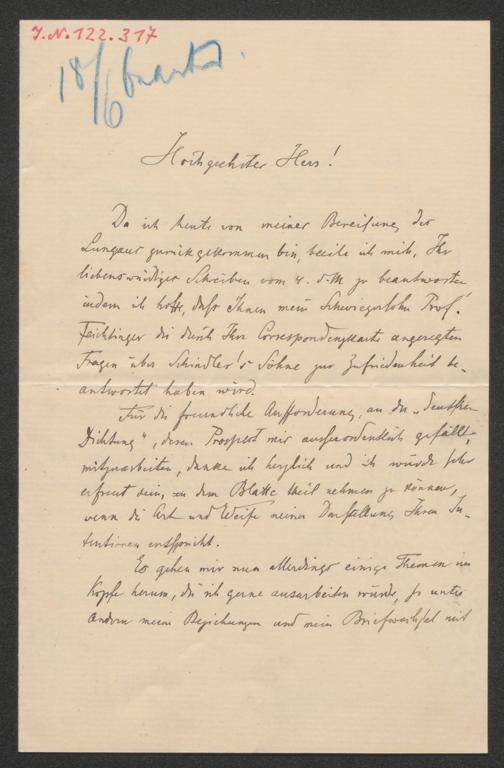 J.N. 122.317
18/6 beantw.
Hochgeehrter Herr!
Da ich heute von meiner Bereisung des
Lungaus zurückgekommen bin, beeile ich mich, Ihr
liebenswürdiges Schreiben vom 4. d. M. zu beantworten
indem ich hoffe, daß Ihnen mein Schwiegersohn Prof.
Feichtinger die durch Ihre Correspondenzkarte angeregten
Fragen über Schindler's Söhne zur Zufriedenheit be-
antwortet haben wird.
Für die freundliche Aufforderung, an der „Deutschen
Dichtung", deren Prospect mir außerordentlich gefällt,
mitzuarbeiten, danke ich herzlich und ich würde sehr
erfreut sein, an dem Blatte theil nehmen zu können,
wenn die Art und Weise meiner Darstellung Ihren In-
tentionen entspricht.
Es gehen mir nun allerdings einige Themen im
Kopfe herum, die ich gerne ausarbeiten würde, so unter
andern meine Beziehungen und mein Briefwechsel mit